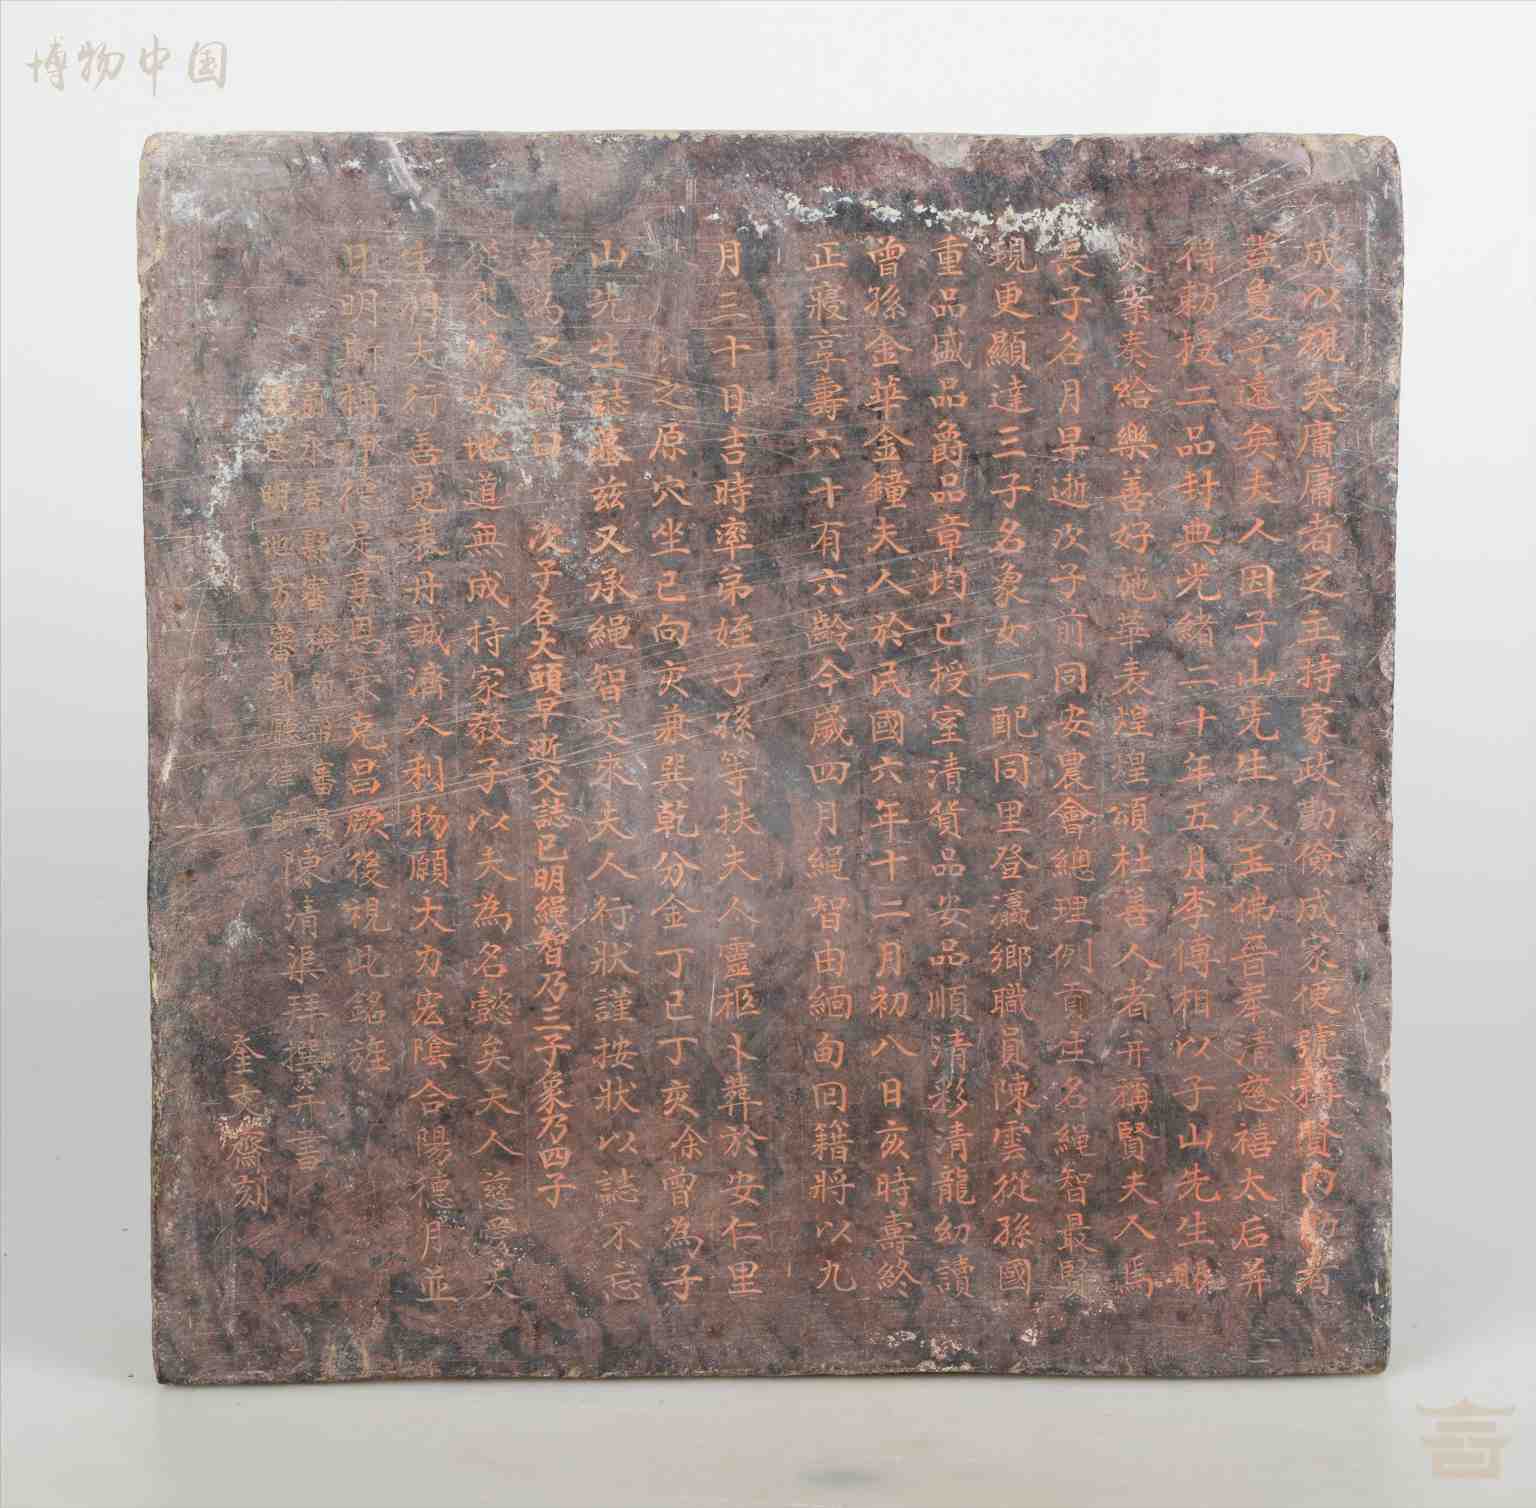 博物中国
成以視夫庸庸者之主持家政勤儉成家便號稱賢內助者
豈敻乎遠矣夫人因子山先生以玉佛晉奉清慈禧太后并
得勅授二品封典光緒二十年五月李傅相以子山先生賑
災案奏給樂善好施華表煌煌頌杜善人者并稱賢夫人焉
長子名月早逝次子前同安農會總理例貢生名繩智最賢
現更顯達三子名象女一配同里登瀛鄉職員陳雲從孫國
重品盛品爵品章均已授室清貨品安品順清彩清龍幼讀
曾孫金華金鐘夫人於民國六年十二月初八日亥時壽終
正寢享壽六十有六齡今歲四月繩智由緬甸回籍將以九
月三十日吉時率弟姪子孫等扶夫人靈柩卜葬於安仁里
之原穴坐已向亥兼巽乾分金丁已丁亥余曾為子
山先生誌墓茲又承繩智交來夫人行狀謹按狀以誌不忘
為之銘曰 次子名大頭早逝父誌已明繩智乃三子象乃四子
婦女地道無成持家教子以夫為名懿矣夫人慈愛
夫行善更表丹誠濟人利物願大力宏陰合陽德月並
日明 是享 克昌厥後視此銘旌
陳清渠拜撰并書
奎文齋刻